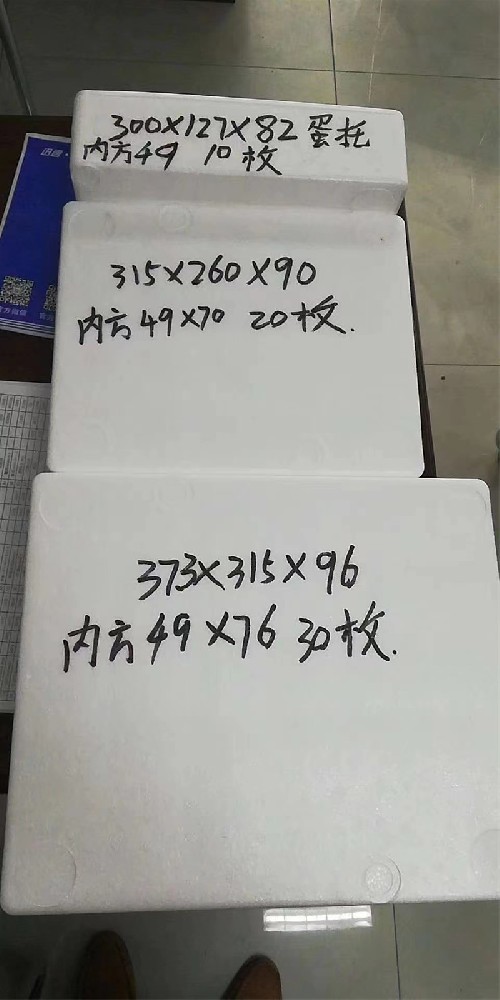 300×127×82 蛋托
内方49 10枚
315×260×90
内方49×70 20枚.
373×315×96
内方49×76 30枚.